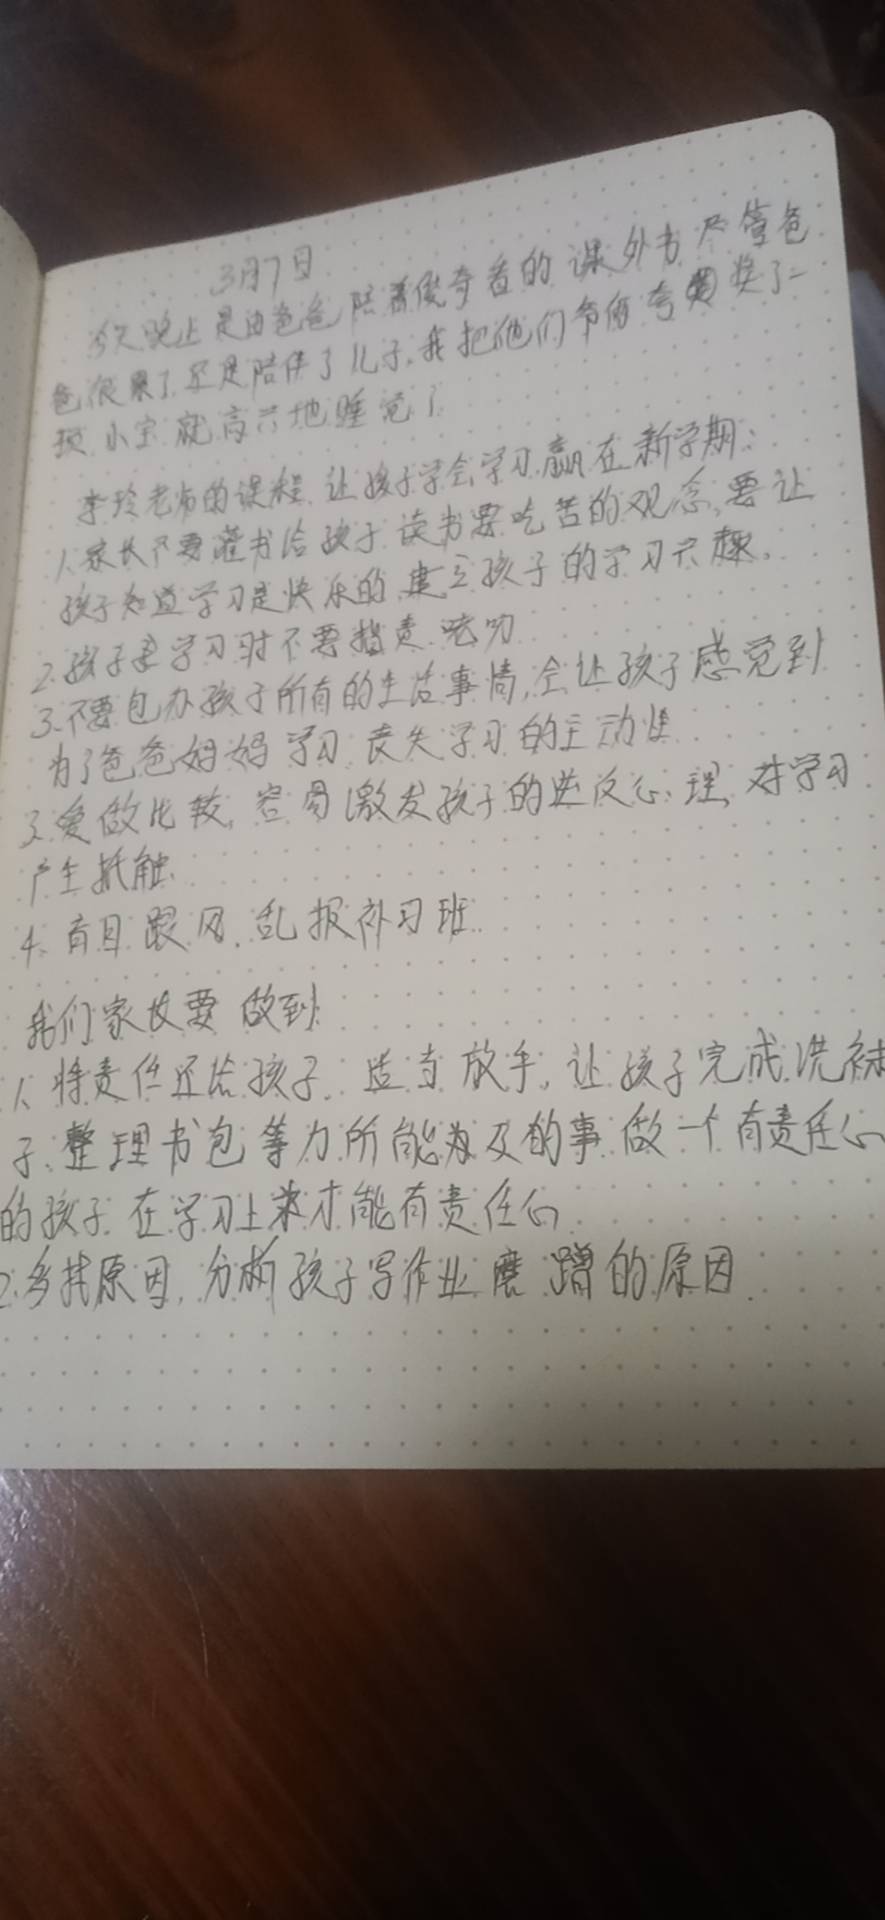 3月7日
今天晚上是由爸爸陪着俊奇看的课外书尽管爸
爸很累了.还是陪伴了儿子.我把他们爷俩夸奖了一
顶小宝就高兴地睡觉了
李玲老师的课程.让孩子学会学习.赢在新学期:
1.家长不要灌书给孩子读书要吃苦的观念,要让
孩子知道学习是快乐的.建立孩子的学习兴趣。
2.孩子学习时不要指责唠叨
3.不要包办孩子所有的生活事情,会让孩子感觉到
为了爸爸妈妈学习丧失学习的主动性
3.爱做比较,容易激发孩子的逆反心理,对学习
产生抵触.
4.盲目跟风.乱报补习班.
我们家长要做到
1.将责任还给孩子.适当放手.让孩子完成洗袜
子.整理书包等力所能为及的事.做一个有责任心
的孩子.在学习上才能有责任心
2.多找原因.分析孩子写作业磨蹭的原因.